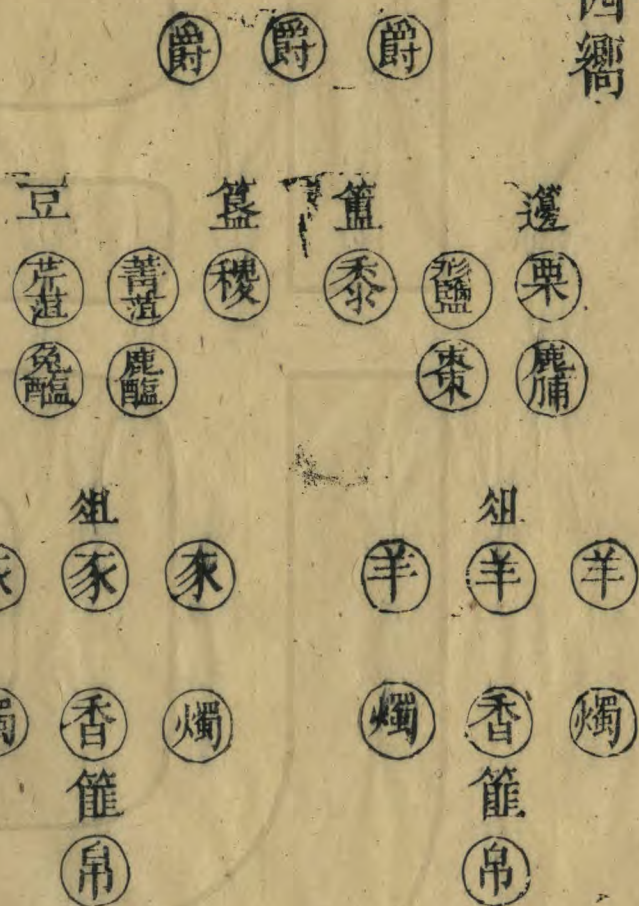 西嚮
爵 爵 爵
籩 簠 簋 豆
栗 形鹽 黍 稷 菁菹 芹菹
鹿脯 棗 鹿醢 兔醢
俎 俎
羊 羊 羊 豕 豕 豕
燭 香 燭 燭 香 燭
篚 篚
帛 帛